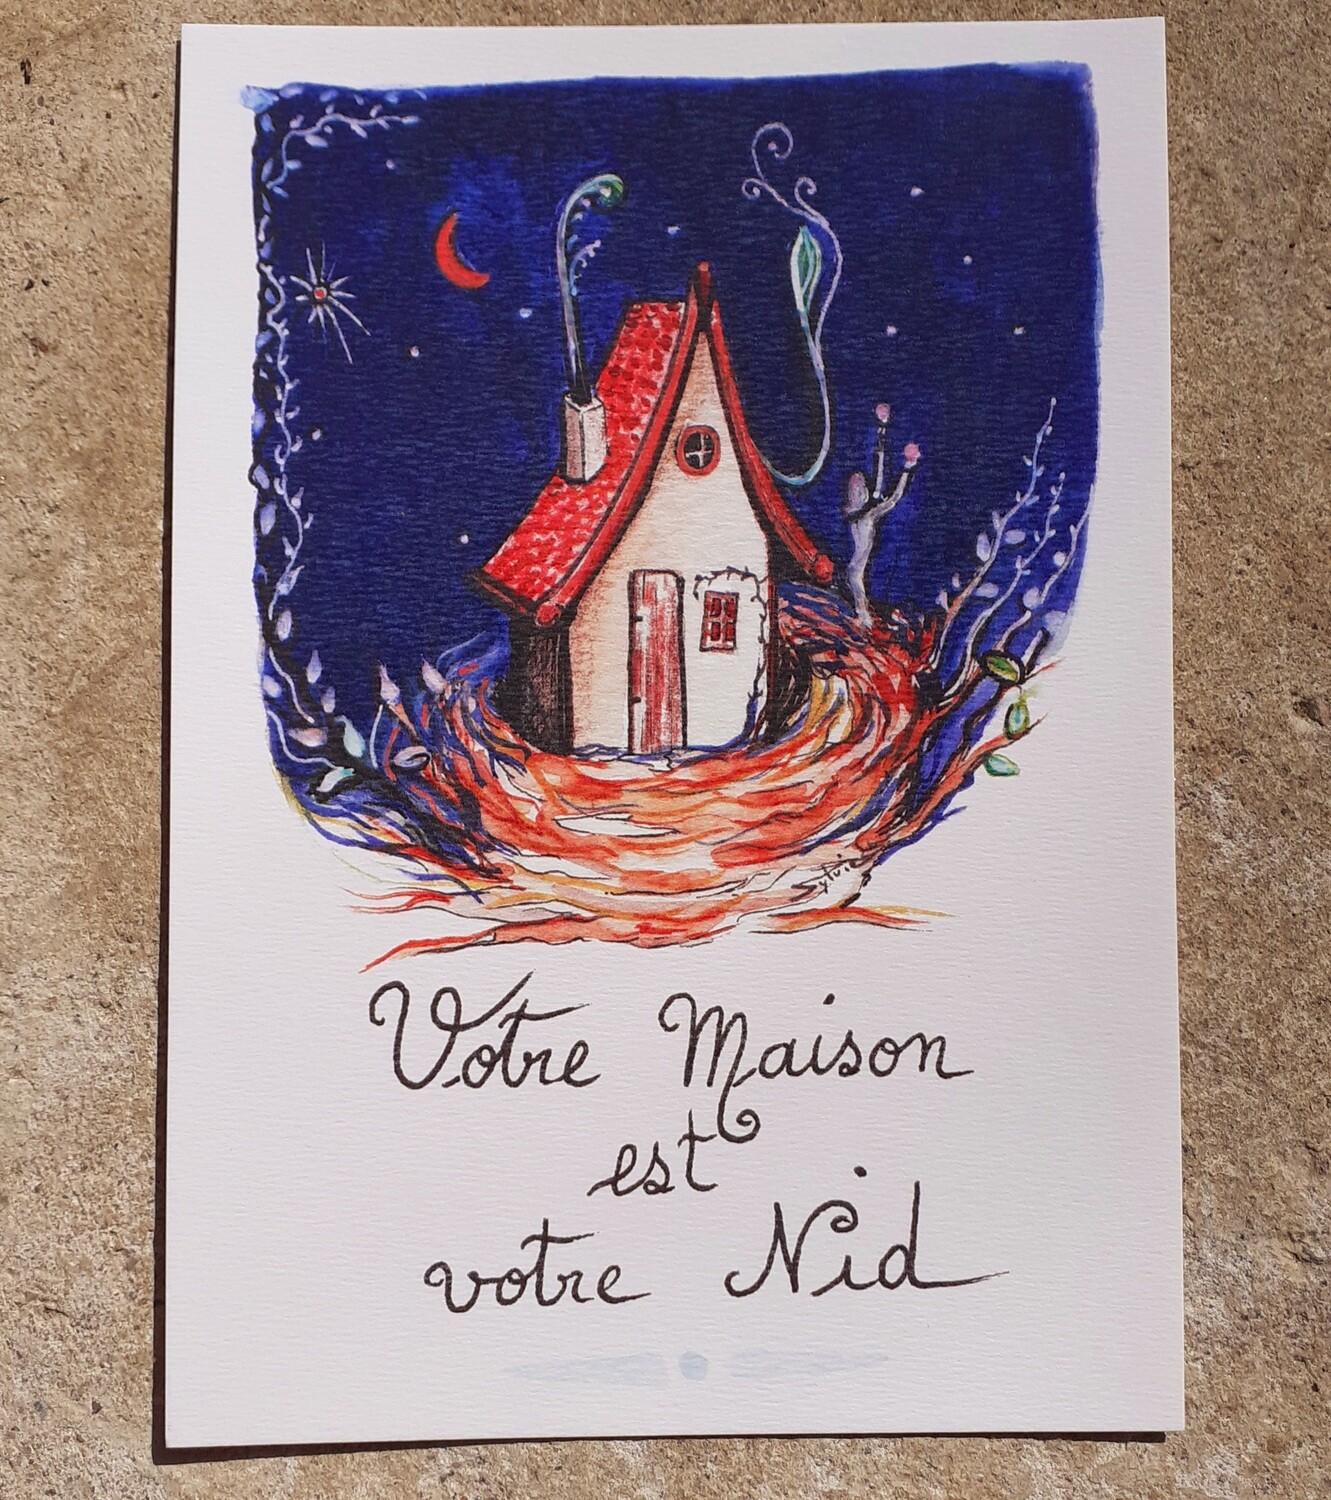 Sylvie
Votre Maison
est
votre Nid